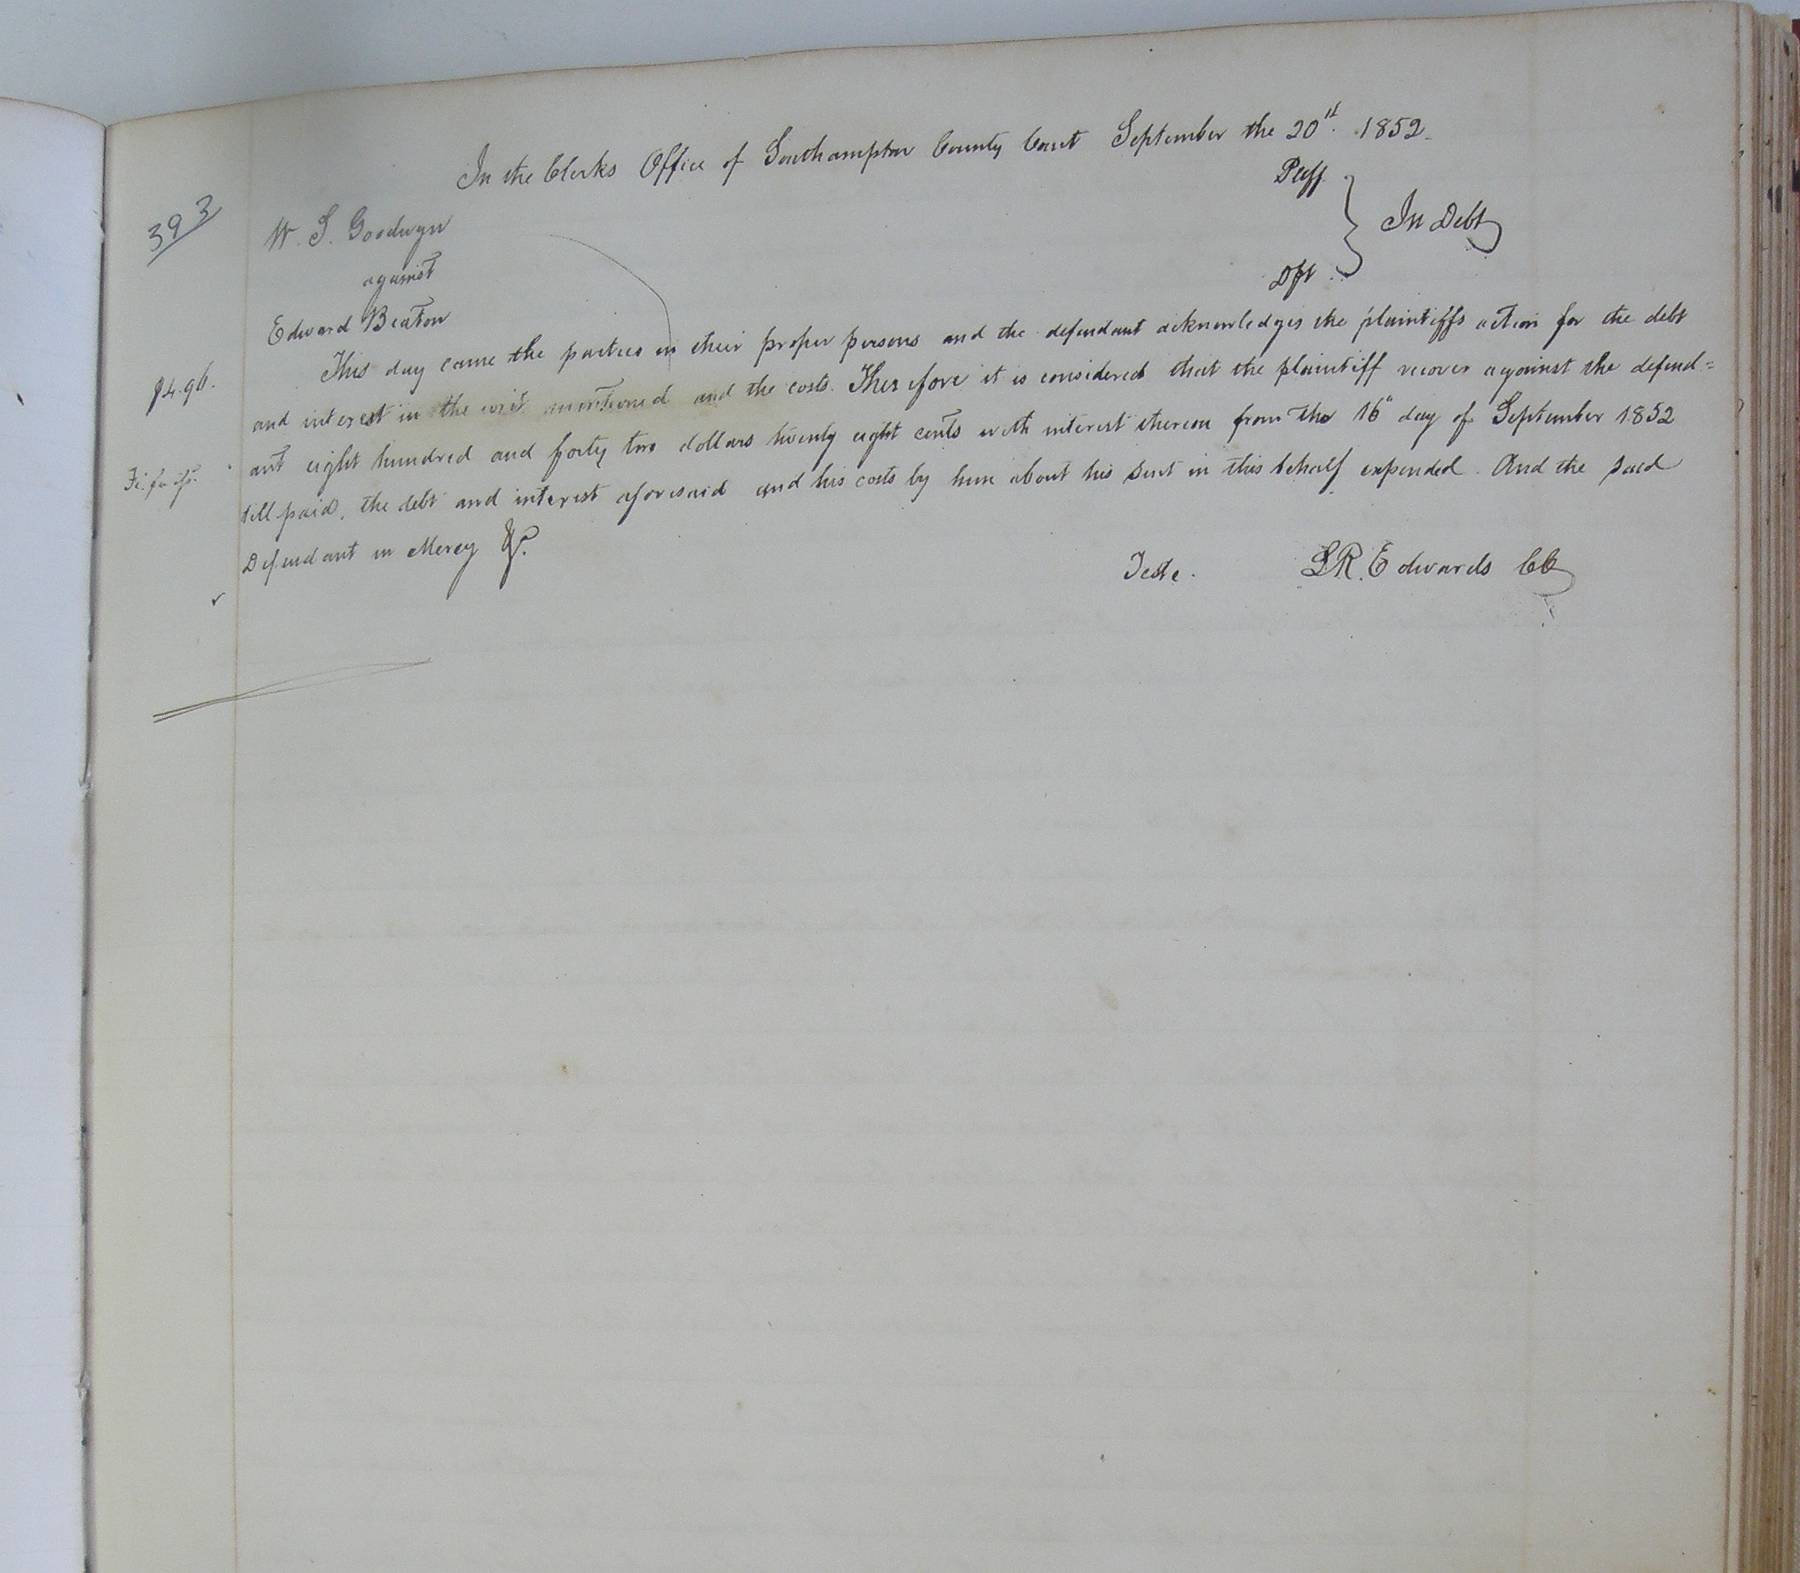 In the Clerks Office of Southampton County Court September the 20th. 1852.
393
W. S. Goodwyn Plff.
against In Debt
Edward Beaton Dft.
This day came the parties in their proper persons and the defendant acknowledges the plaintiffs action for the debt
$4.96.
and interest in the writ mentioned and the costs. Therefore it is considered that the plaintiff recover against the defend=
ant eight hundred and forty two dollars twenty eight cents with interest thereon from the 16" day of September 1852
Fi: fa
till paid, the debt and interest aforesaid and his costs by him about his Suit in this behalf expended. And the said
Defendant in Mercy &c.
Teste. L.R. Edwards Clk